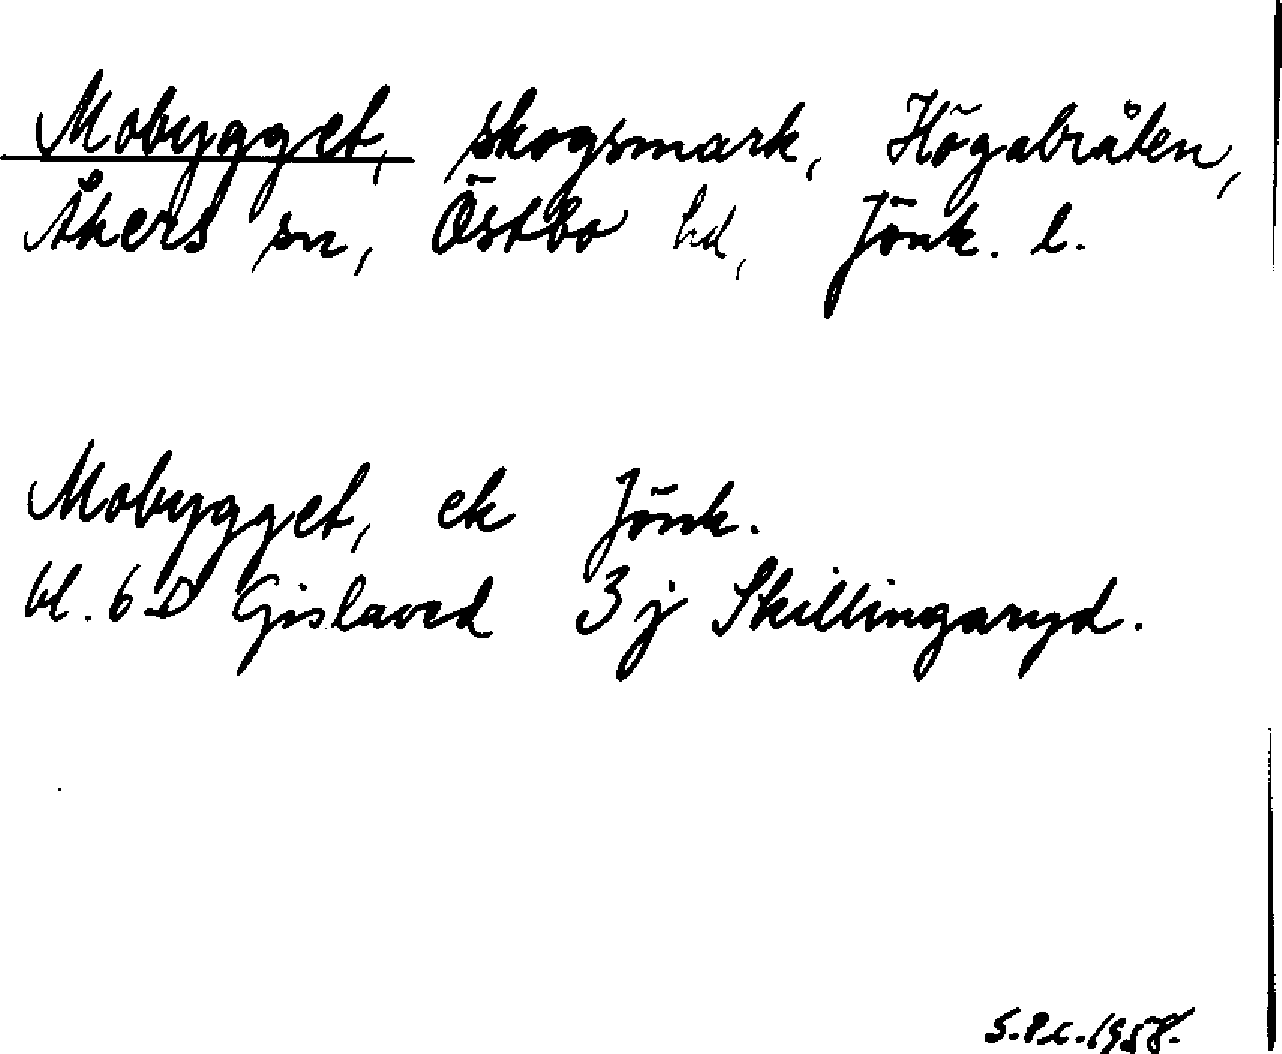 Mobygget, skogsmark, Högabråten,
Åkers sn, Östbo hd, Jönk. l.
Mobygget, ek Jönk.
bl. 6 D Gislaved 3 j Skillingaryd.
S.P.C. 1958.